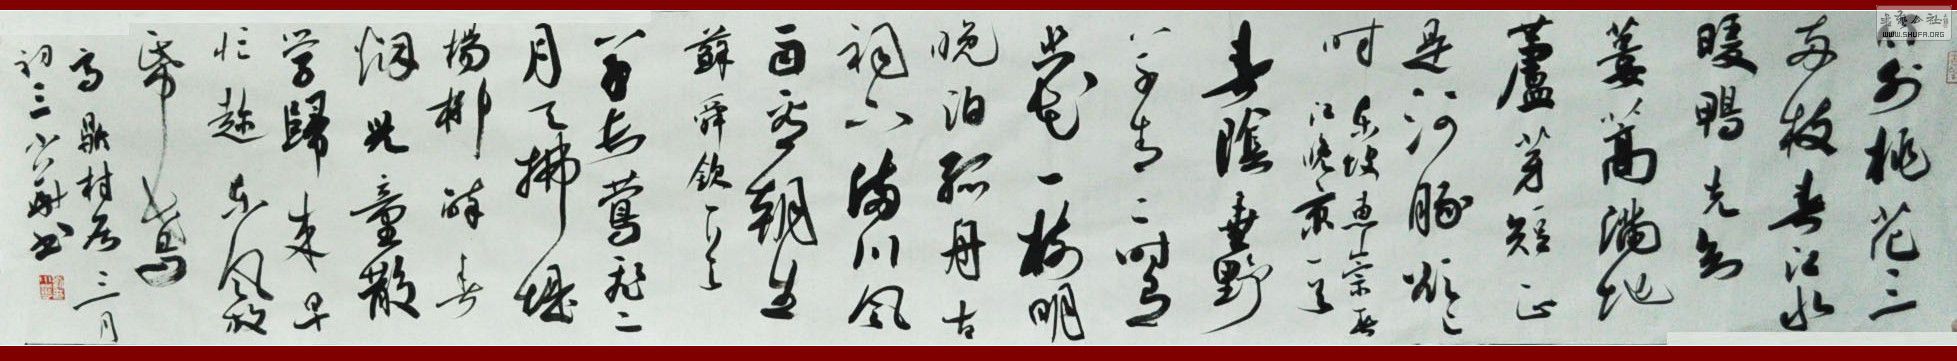 竹外桃花三
两枝春江水
暖鴨先知
蒌蒿满地
蘆芽短正
是河豚欲上
时 东坡惠崇春
江晚景一首
春陰垂野
草青青时有
幽花一树明
晚泊孤舟古
祠下满川风
雨看潮生
蘇舜钦一首
草长莺飞二
月天拂堤
杨柳醉春
烟兒童散
学歸来早
忙趁东风放
纸鸢
高鼎村居 三月
初三 书
WWW.SHUFA.ORG